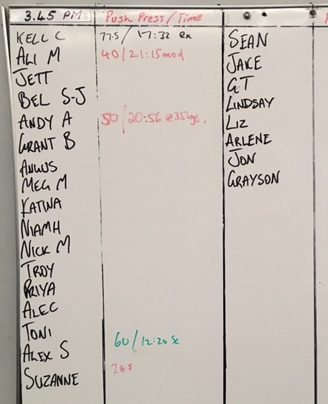 3.45 PM Push Press/Time
KELL C 77.5/17:32 Rx
ALI M 40/21:15 mod
JETT
BEL S-J
ANDY A 50/20:56 @35kgs.
GRANT B
ANGUS
MEG M
KATINA
NIAMH
NICK M
TROY
PRIYA
ALEC
TONI
ALEX S 60/12:20 Sc
SUZANNE 28.5
SEAN
JAKE
GT
LINDSAY
LIZ
ARLENE
JON
GRAYSON